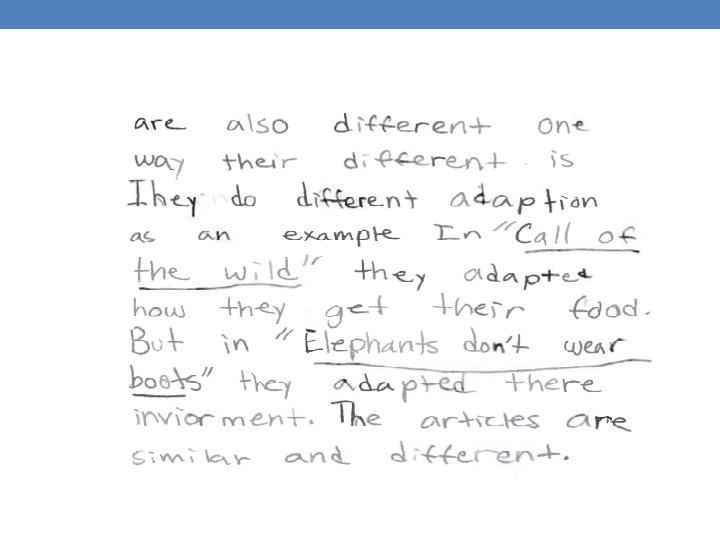 are also different one
way their different is
They do different adaption
as an example In "Call of
the wild" they adapted
how they get their food.
But in "Elephants don't wear
boots" they adapted there
inviorment. The articles are
similar and different.